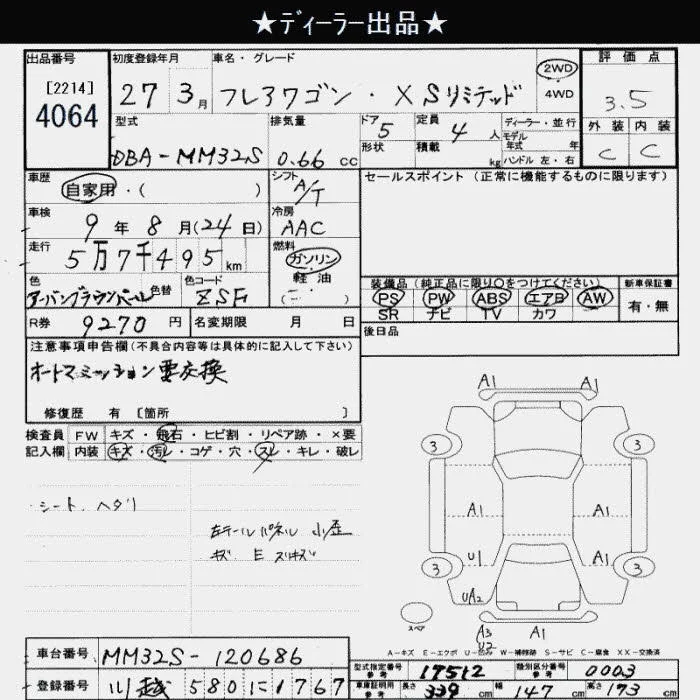 ★ディーラー出品★
出品番号
[2214]
4064
初度登録年月
27 3月
車名・グレード
フレアワゴン・XSリミテッド
2WD
4WD
評価点
3.5
外装 内装
C C
型式
DBA-MM32S
排気量
0.66 cc
ドア 5
形状
定員 4 人
積載 kg
ディーラー・並行
モデル年式 年
ハンドル 左・右
車歴
自家用・( )
シフト
A/T
セールスポイント (正常に機能するものに限ります)
車検
9年 8月(24日)
冷房
AAC
走行
5万7千495km
燃料
ガソリン
軽油
色
アーバンブラウンパール
色替
色コード
ZSF
装備品 (純正品に限り〇をつけてください)
PS PW ABS エアB AW
SR ナビ TV カワ
新車保証書
有・無
R券 9270 円
名変期限 月 日
後日品
注意事項申告欄(不具合内容等は具体的に記入して下さい)
オートマミッション要交換
修復歴 有 [箇所 ]
検査員
記入欄
FW キズ・飛石・ヒビ割・リペア跡・×要
内装 キズ・汚レ・コゲ・穴・スレ・キレ・破レ
シート、ヘタリ
左テールパネル 小歪
キズ E スリキズ
A1 A1
3 3
A1 A1
U1 A1
3 3
UA2
スペア
A3
U2
A1
A-キズ E-エクボ U-凹み W-補修跡 S-サビ C-腐食 XX-交換済
車台番号 MM32S-120686
登録番号 川越 580 に 1767
型式指定番号 参考 17512
類別区分番号 参考 0003
車庫証明用 参考 長さ 339 cm 幅 147 cm 高さ 173 cm